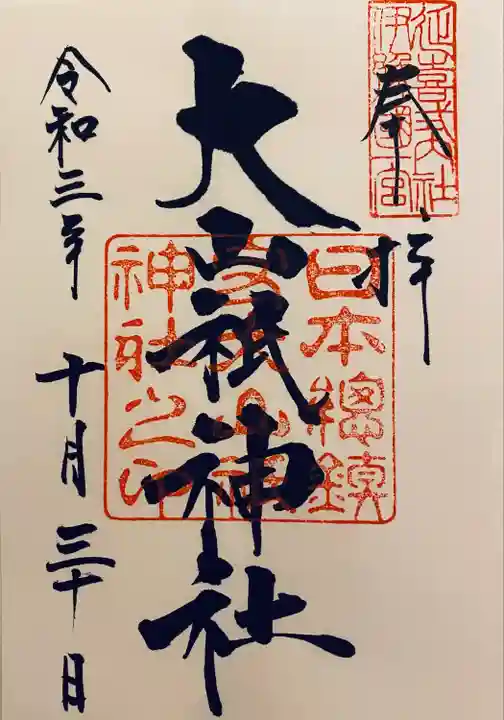 奉拝
延喜式大社
伊豫国一宮
大山祇神社
日本総鎮
守大山祇
神社之印
令和三年
十月三十日